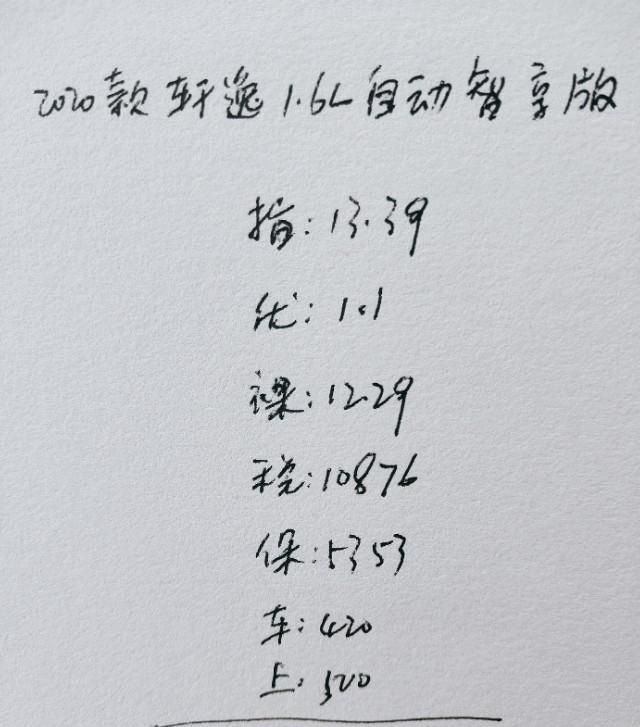 2020款轩逸1.6L自动智享版
指:13.39
优:1.1
裸:12.29
税:10876
保:5353
车:420
上:500